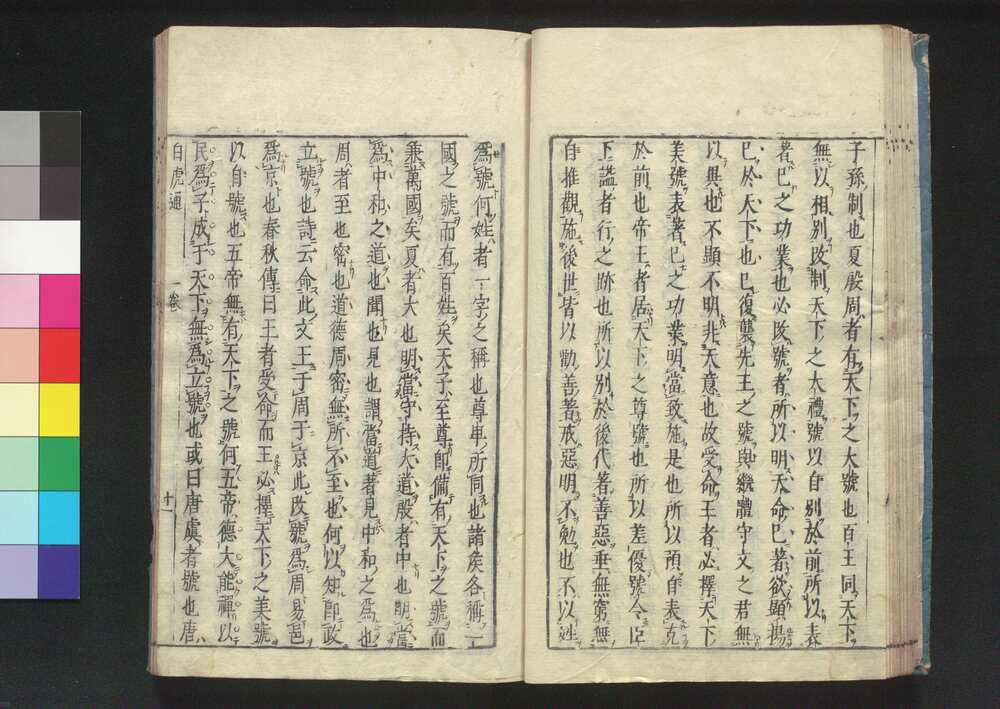 子孫制也夏殷周者有天下之大號也百王同天下
無以相別改制天下之大禮號以自別於前所以表
著己之功業也必改號者所以明天命已著欲顯揚
己於天下也已復襲先王之號與繼體守文之君無
以異也不顯不明非天意也故受命王者必擇天下
美號表著己之功業明當致施是也所以預自表克
於前也帝王者居天下之尊號也所以差優號令臣
下謚者行之跡也所以別於後代著善惡垂無窮無
自推觀施後世皆以勸善著戒惡明不勉也不以姓
爲號何姓者一字之稱也尊卑所同也諸侯各稱一
國之號而有百姓矣天子至尊即備有天下之號而
兼萬國矣夏者大也明當守持大道殷者中也明當
爲中和之道也聞也見也謂當道著見中和之爲也
周者至也密也道德周密無所不至也何以知即政
立號也詩云命此文王于周于京此改號爲周易邑
爲京也春秋傳曰王者受命而王必擇天下之美號
以自號也五帝無有天下之號何五帝德大能禪以
民爲子成于天下無爲立號也或曰唐虞者號也唐
白虎通 一卷 十一